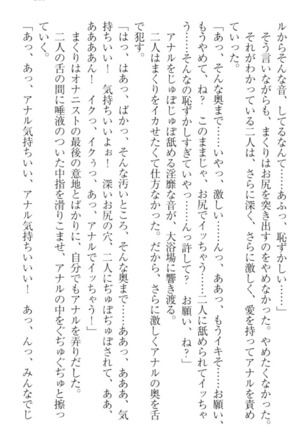 ルからそんな音、してるなんて……あふっ、恥ずかしい……」
そう言いながらも、まくりはお尻を突き出すのをやめなかった。やめたくなかった。
それがわかっている二人は、さらに深く、さらに激しく、愛を持ってアナルを責め
ていった。
「あっ、そんな奥まで……いやっ、激しい……んっ、ああっ、もうイキそ……お願い、
もうやめて、ね？　このままじゃ、お尻でイッちゃう……二人に舐められてイッちゃ
う……あっ、そんなの恥ずかしすぎていやっ……んっ、許して？　お願い、ね？」
アナルをじゅぽじゅぽ舐める淫靡な音が、大浴場に響き渡る。
二人はまくりをイカせたくて仕方なかった。だから、さらに激しくアナルの奥を舌
で犯す。
「はっ、はあっ、ばかっ、そんな汚いところ、そんな奥まで……ああっ、あああ、気
持ちいい！　気持ちいいよぉ！　深いお尻の穴、二人にぢゅぽぢゅぽされて、ああ、
ああああん！　イクっ、イクぅっ、あっ、アナルでイッちゃう！」
まくりはオナニストの最後の意地とばかりに、自分でもアナルを弄りだした。
二人の舌の間に唾液のついた中指を滑りこませ、アナルの中をぐぢゅぐぢゅと擦っ
ていく。
「あっ、あっ、アナル気持ちいい、アナル気持ちいいい！　あっ、んっ、みんなでじ